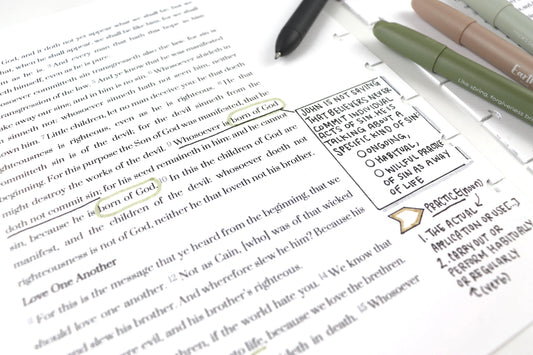 God, and it doth not yet appear what we shall be: but we
that, when he shall appear, we shall be like him, for we shall
as he is. And every man that hath this hope in him
himself, even as he is pure.
committeth sin transgresseth also the law: for sin is
transgression of the law. And ye know that he was manifested
take away our sins, and in him is no sin. Whosoever abideth
sinneth not: whosoever sinneth hath not seen him, neither
him. Little children, let no man deceive you: he that doeth
righteousness is righteous, even as he is righteous. He that
committeth sin is of the devil; for the devil sinneth from the
beginning. For this purpose the Son of God was manifested, that he
might destroy the works of the devil. Whosoever is born of God
doth not commit sin; for his seed remaineth in him: and he cannot
sin, because he is born of God. 10 In this the children of God are
manifest, and the children of the devil: whosoever doeth not
righteousness is not of God, neither he that loveth not his brother.
Love One Another
For this is the message that ye heard from the beginning, that we
should love one another. 12 Not as Cain, [who] was of that wicked
and slew his brother. And wherefore slew he him? Because his
were evil, and his brother's righteous.
brethren, if the world hate you. 14 We know that
to life, because we love the brethren.
death in death. 15 Whosoever
JOHN IS NOT SAYING
THAT BELIEVERS NEVER
COMMIT INDIVIDUAL
ACTS OF SIN. HE IS
TALKING ABOUT A
SPECIFIC KIND OF SIN:
ONGOING,
HABITUAL,
WILLFUL PRACTICE
OF SIN AS A WAY
OF LIFE
PRACTICE
1. THE ACTUAL
APPLICATION OR USE
2. CARRY OUT OR
PERFORM HABITUALLY
OR REGULARLY
(VERB)
Like spring, forgiveness
Earth